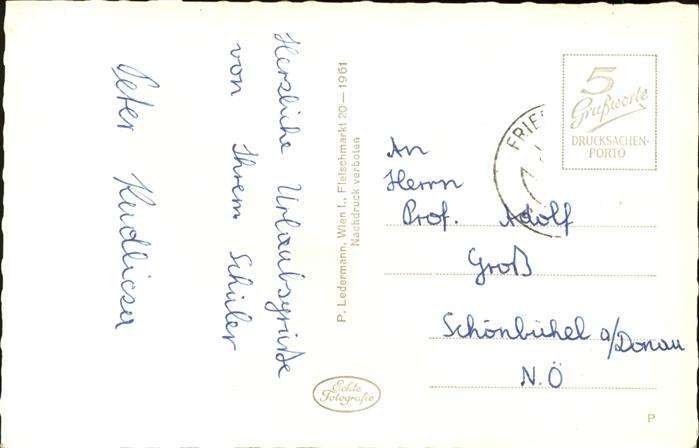 Herzliche Urlaubsgrüße
von Ihrem Schüler
Peter
P. Ledermann, Wien I., Fleischmarkt 20 – 1961
Nachdruck verboten
Echte
Fotografie
5
Grußworte
DRUCKSACHEN-
PORTO
FRIE
An
Herrn
Prof. Adolf
Groß
Schönbühel a/Donau
N.Ö
P